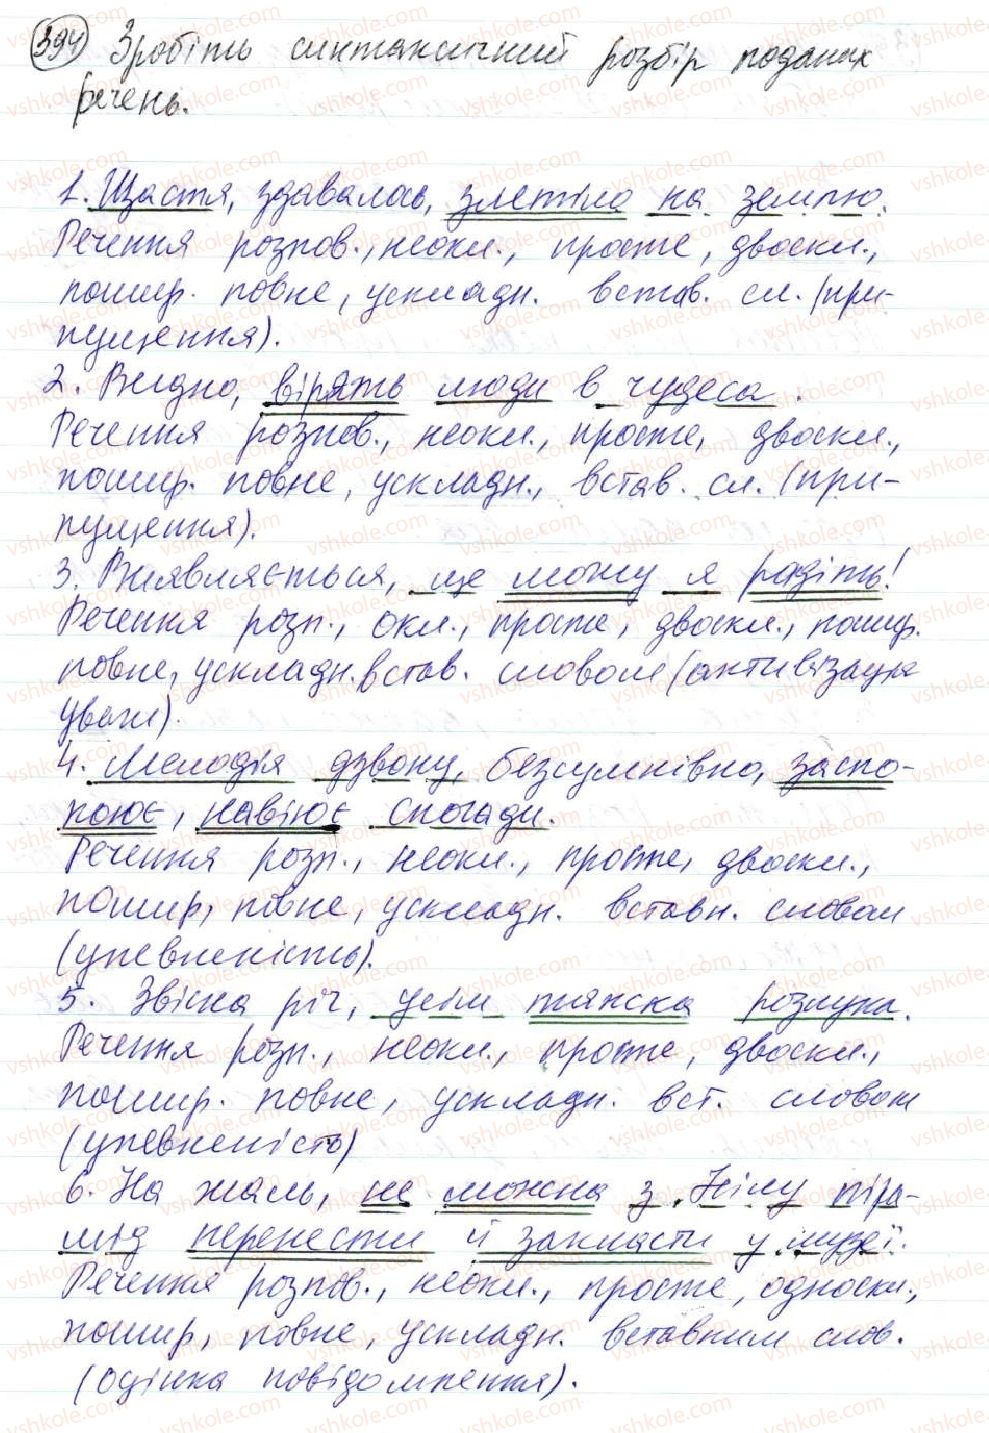 394 Зробіть синтаксичний розбір поданих
речень.
1. Щастя, здавалось, злетіло на землю.
Речення розпов., неокл., просте, двоскл.,
пошир. повне, ускладн. встав. сл. (при-
пущення).
2. Видно, вірять люди в чудеса.
Речення розпов., неокл., просте, двоскл.,
пошир. повне, ускладн., встав. сл. (при-
пущення).
3. Виявляється, ще можу я радіть!
Речення розп., окл., просте, двоскл., пошир.
повне, ускладн. встав. словом (активізація
уваги).
4. Мелодія дзвону, безсумнівно, заспо-
коює, навіює спогади.
Речення розп., неокл., просте, двоскл.,
пошир, повне, ускладн. вставн. словом
(упевненість).
5. Звісна річ, усім тяжка розлука.
Речення розп., неокл., просте, двоскл.,
пошир. повне, ускладн. вст. словом
(упевненість)
6. На жаль, не можна з Нілу піра-
мід перенести й закласти у музеї.
Речення розпов., неокл., просте, односкл.,
пошир, повне, ускладн. вставним слов.
(оцінка повідомлення).